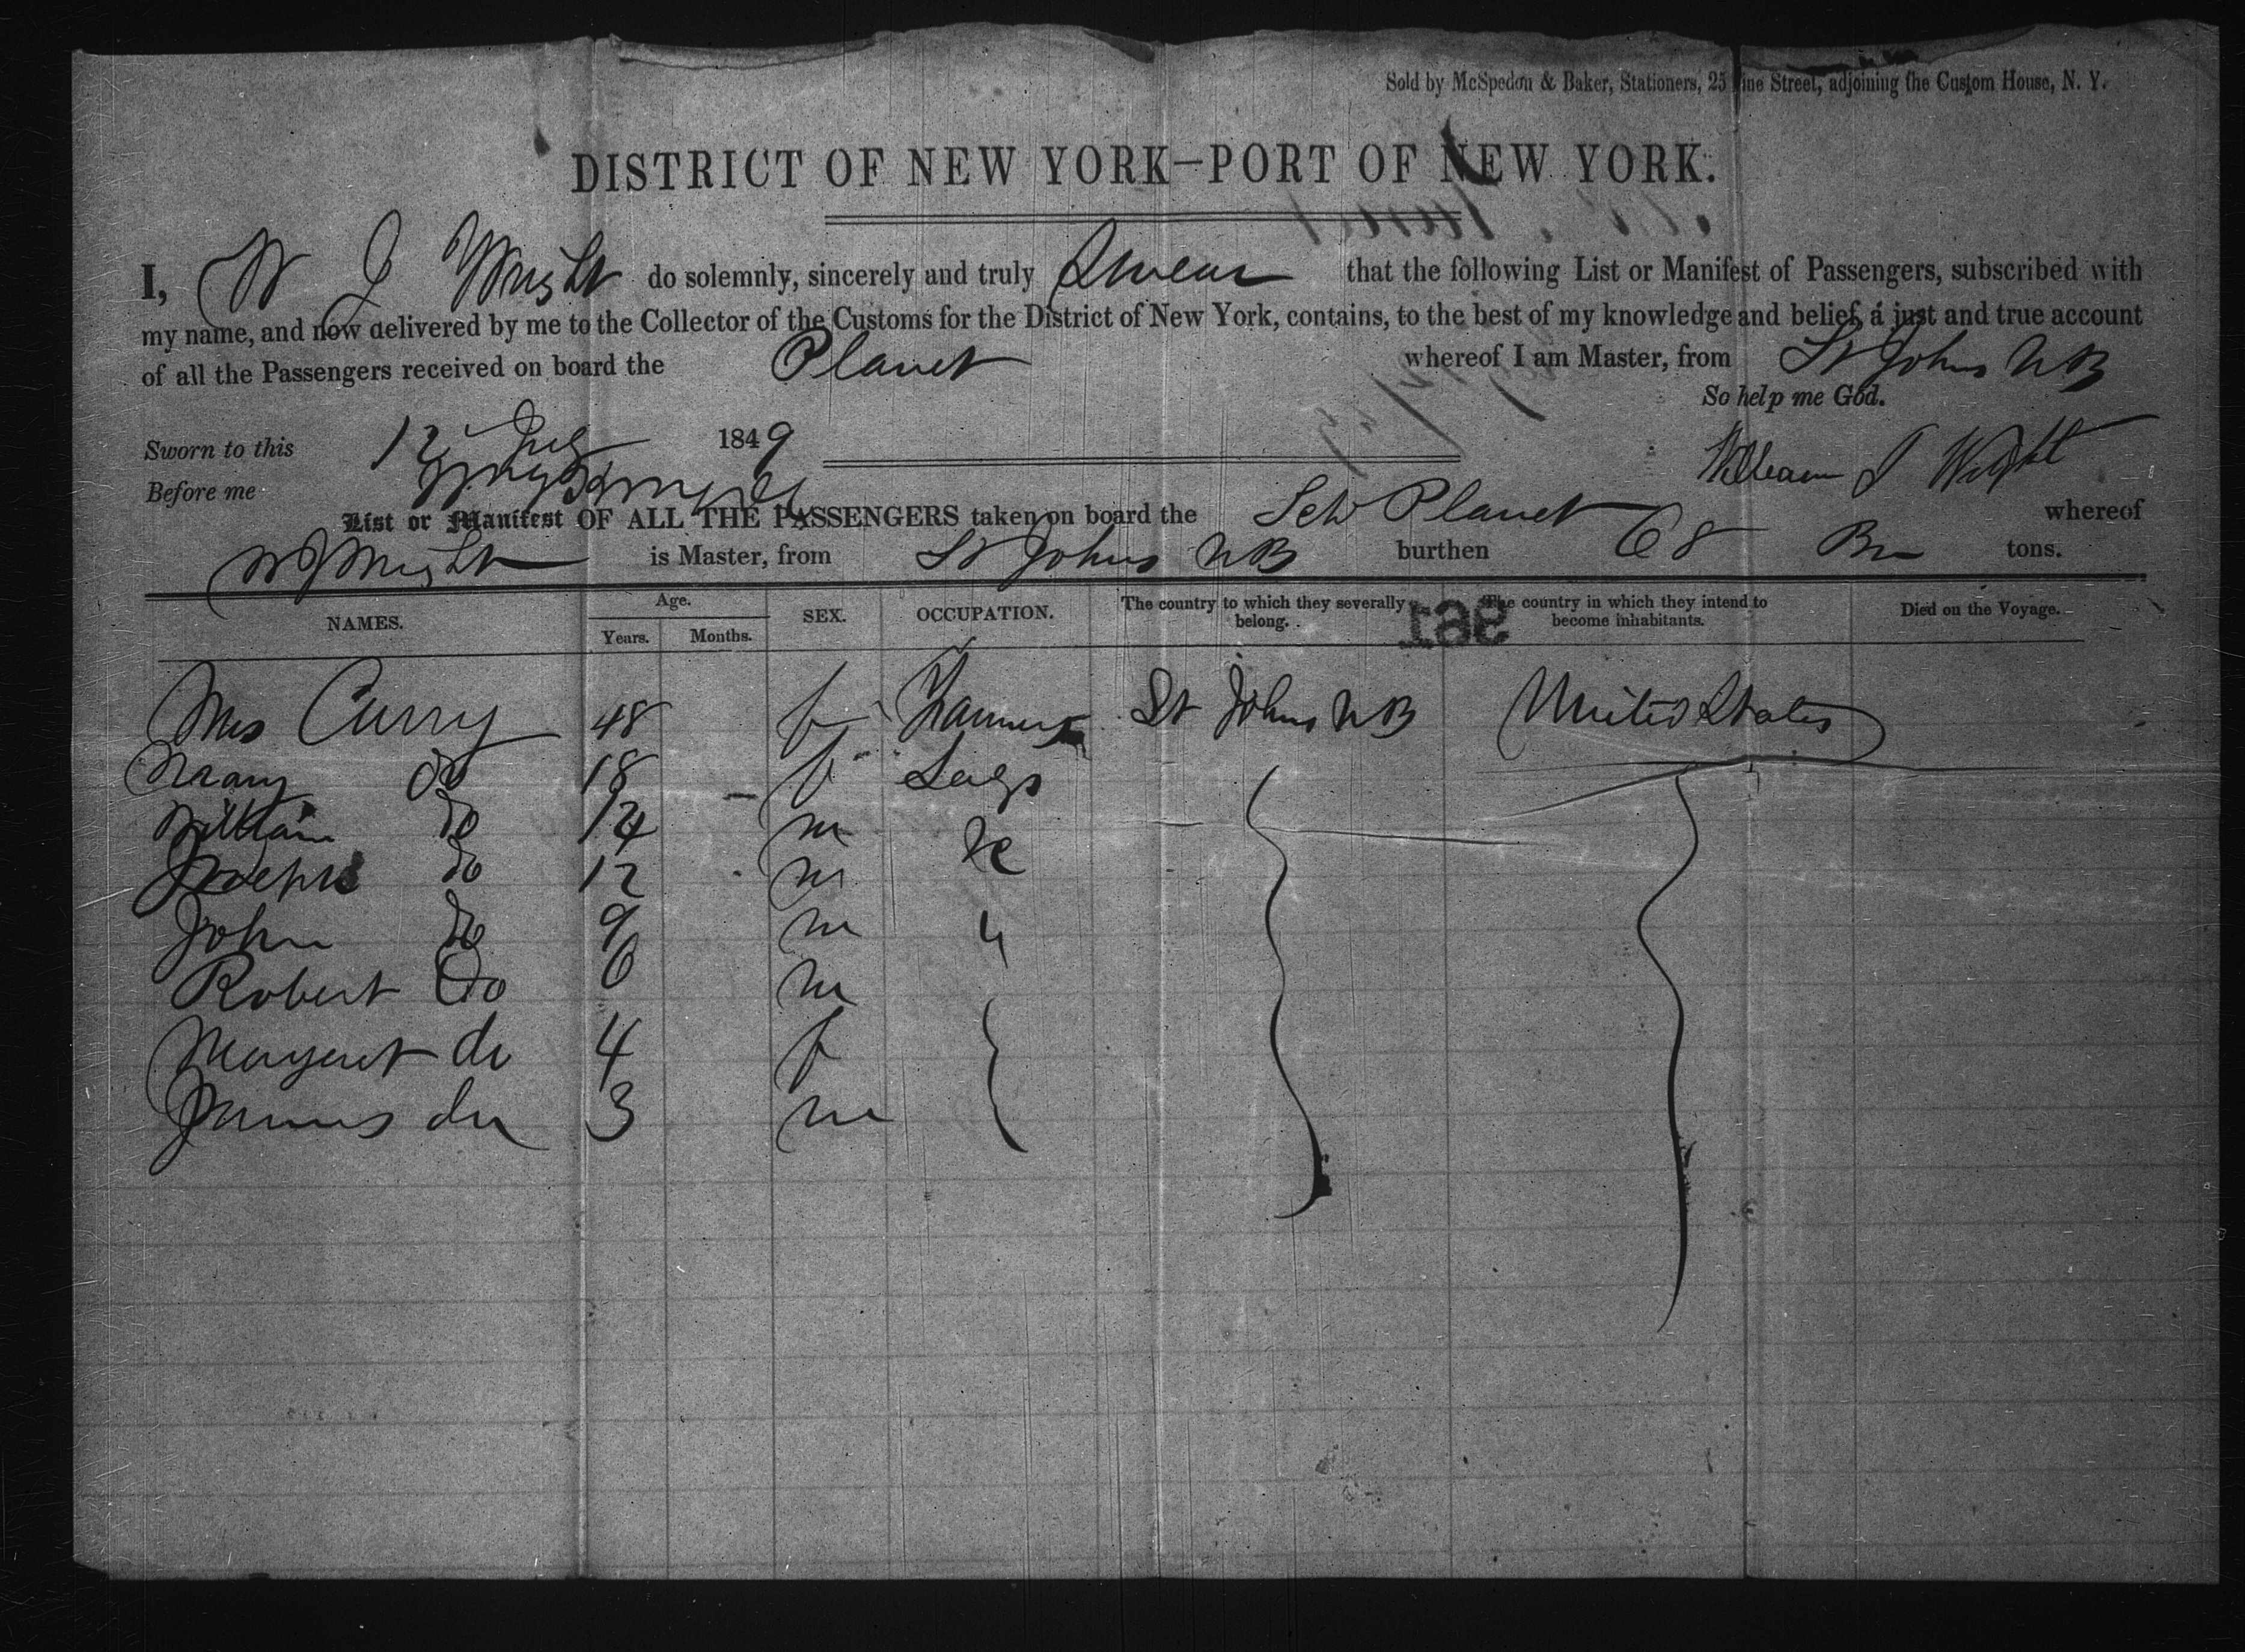 Sold by McSpedon & Baker, Stationers, 25 Pine Street, adjoining the Custom House, N. Y.
DISTRICT OF NEW YORK—PORT OF NEW YORK.
I, W J Wright do solemnly, sincerely and truly Swear that the following List or Manifest of Passengers, subscribed with
my name, and now delivered by me to the Collector of the Customs for the District of New York, contains, to the best of my knowledge and belief, a just and true account
of all the Passengers received on board the Planet whereof I am Master, from St Johns NB
So help me God.
Sworn to this 12 July 1849
William J Wright
Before me
List or Manifest OF ALL THE PASSENGERS taken on board the Sch Planet whereof
W J Wright is Master, from St Johns NB burthen 68 tons.
NAMES. Age. Years. Months. SEX. OCCUPATION. The country to which they severally belong. The country in which they intend to become inhabitants. Died on the Voyage.
Mrs Curry 48 f St Johns NB United States
Do 18 f
William Do 14 m
Joseph Do 12 m
John Do 9 m
Robert Do 6 m
Margaret do 4 f
James do 3 m